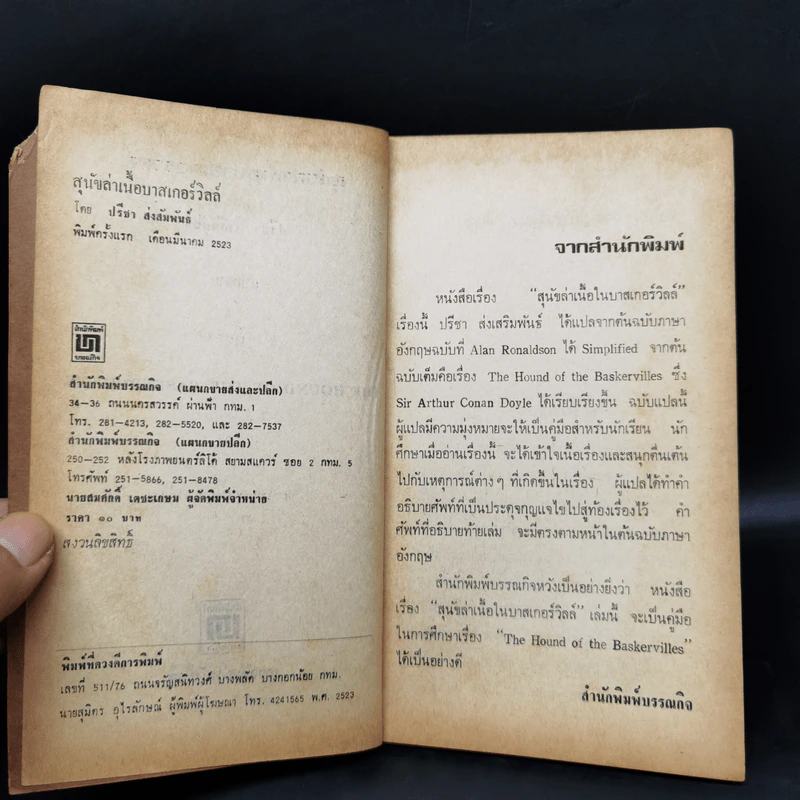 สุนัขล่าเนื้อบาสเกอร์วิลล์
โดย ปรีชา ส่งสัมพันธ์
พิมพ์ครั้งแรก เดือนมีนาคม 2523
สำนักพิมพ์
บรรณกิจ
สำนักพิมพ์บรรณกิจ (แผนกขายส่งและปลีก)
34-36 ถนนนครสวรรค์ ผ่านฟ้า กทม. 1
โทร. 281-4213, 282-5520, และ 282-7537
สำนักพิมพ์บรรณกิจ (แผนกขายปลีก)
250-252 หลังโรงภาพยนตร์ลิโด้ สยามสแควร์ ซอย 2 กทม. 5
โทรศัพท์ 251-5866, 251-8478
นายสมศักดิ์ เตชะเกษม ผู้จัดพิมพ์จำหน่าย
ราคา ๑๐ บาท
สงวนลิขสิทธิ์
พิมพ์ที่ดวงดีการพิมพ์
เลขที่ 511/76 ถนนจรัญสนิทวงศ์ บางพลัด บางกอกน้อย กทม.
นายสุมิตร อุไรลักษณ์ ผู้พิมพ์ผู้โฆษณา โทร. 4241565 พ.ศ. 2523
จากสำนักพิมพ์
หนังสือเรื่อง “สุนัขล่าเนื้อในบาสเกอร์วิลล์”
เรื่องนี้ ปรีชา ส่งเสริมพันธ์ ได้แปลจากต้นฉบับภาษา
อังกฤษฉบับที่ Alan Ronaldson ได้ Simplified จากต้น
ฉบับเต็มคือเรื่อง The Hound of the Baskervilles ซึ่ง
Sir Arthur Conan Doyle ได้เรียบเรียงขึ้น ฉบับแปลนี้
ผู้แปลมีความมุ่งหมายจะให้เป็นคู่มือสำหรับนักเรียน นัก
ศึกษาเมื่ออ่านเรื่องนี้ จะได้เข้าใจเนื้อเรื่องและสนุกตื่นเต้น
ไปกับเหตุการณ์ต่างๆ ที่เกิดขึ้นในเรื่อง ผู้แปลได้ทำคำ
อธิบายศัพท์ที่เป็นประดุจกุญแจไขไปสู่ท้องเรื่องไว้ คำ
ศัพท์ที่อธิบายท้ายเล่ม จะมีตรงตามหน้าในต้นฉบับภาษา
อังกฤษ
สำนักพิมพ์บรรณกิจหวังเป็นอย่างยิ่งว่า หนังสือ
เรื่อง “สุนัขล่าเนื้อในบาสเกอร์วิลล์” เล่มนี้ จะเป็นคู่มือ
ในการศึกษาเรื่อง “The Hound of the Baskervilles”
ได้เป็นอย่างดี
สำนักพิมพ์บรรณกิจ